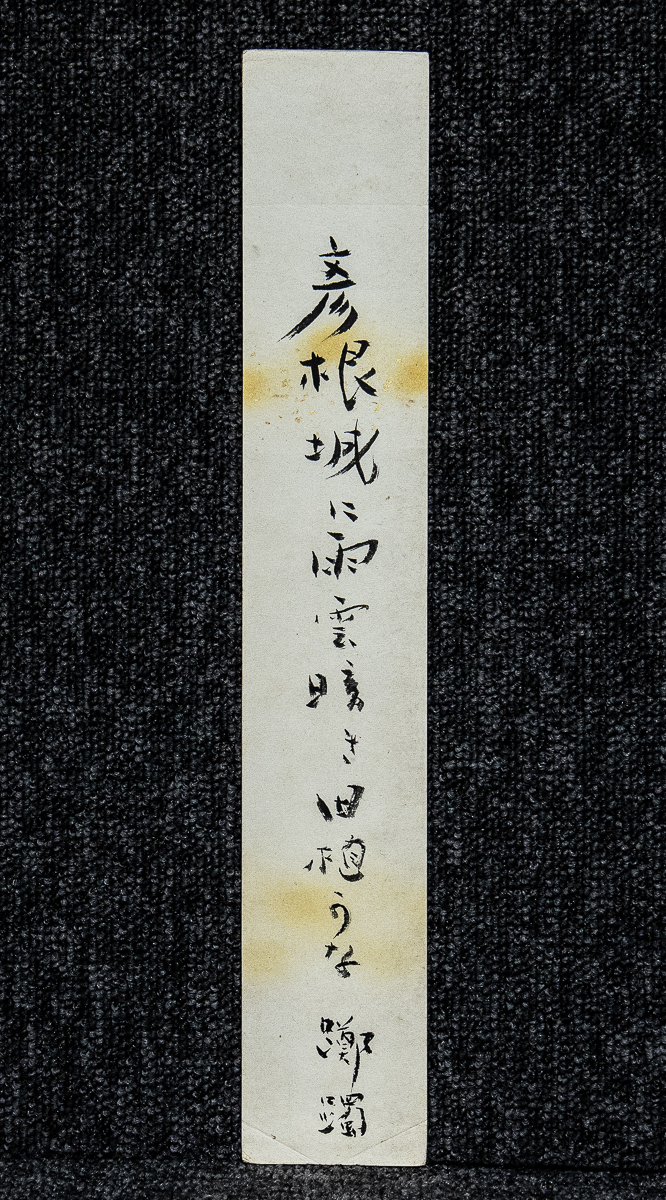 彦根城に雨雲暗き田植かな 躑躅